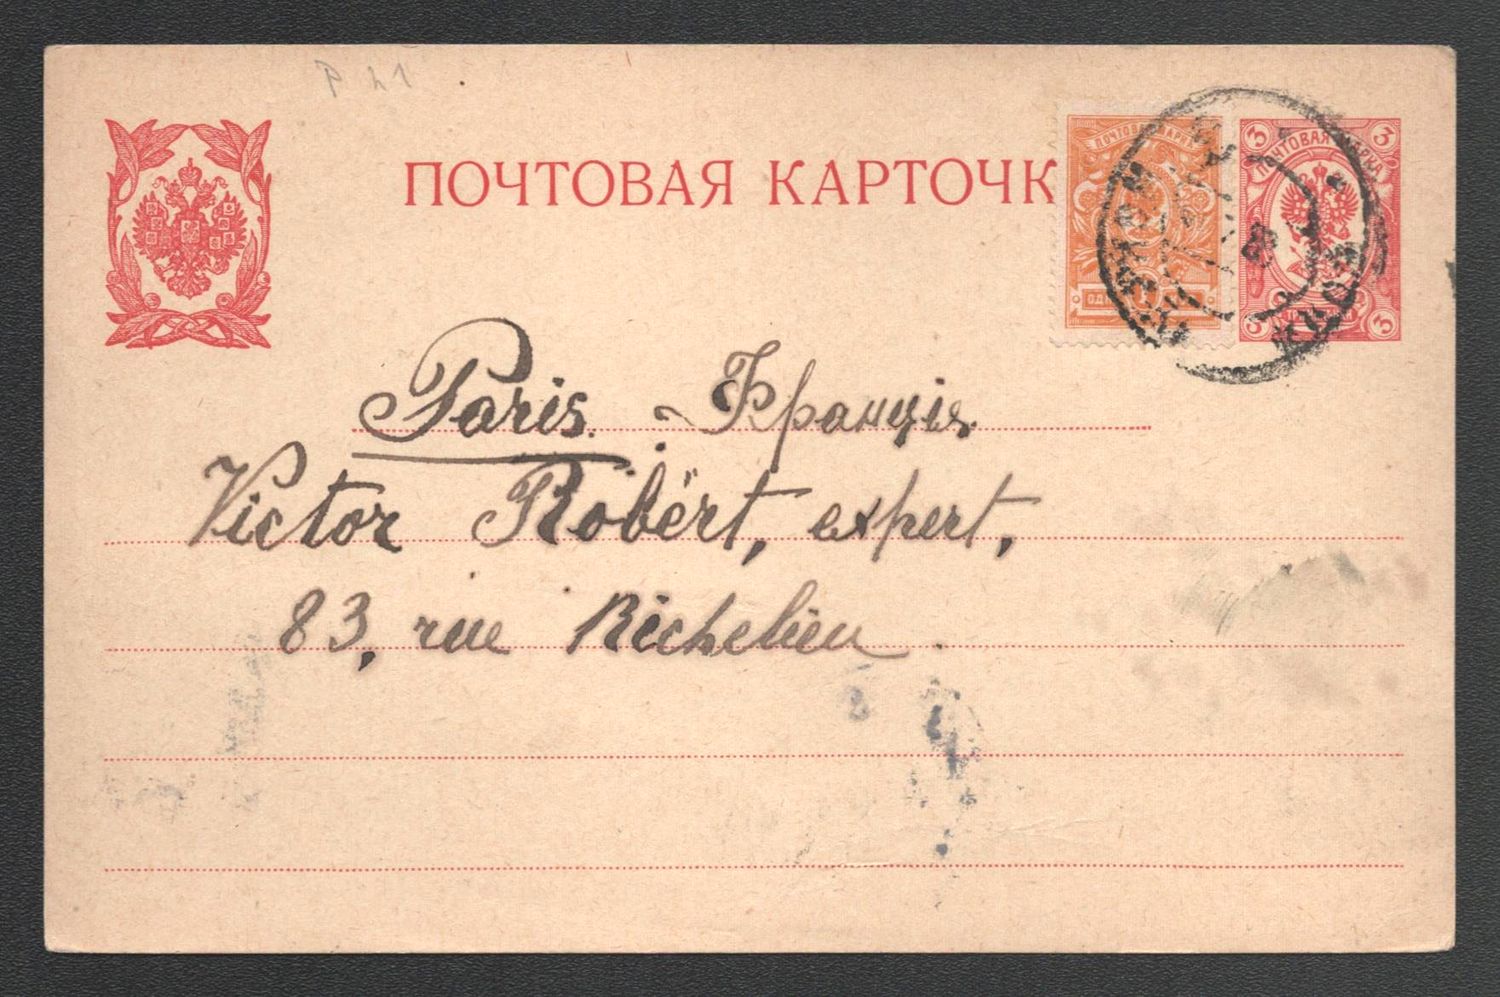 ПОЧТОВАЯ КАРТОЧК
ПОЧТОВАЯ МАРКА
3 ПОЧТОВАЯ МАРКА 3
3 3
Paris. Франція.
Victor Robërt, expert,
83, rue Richelieu.